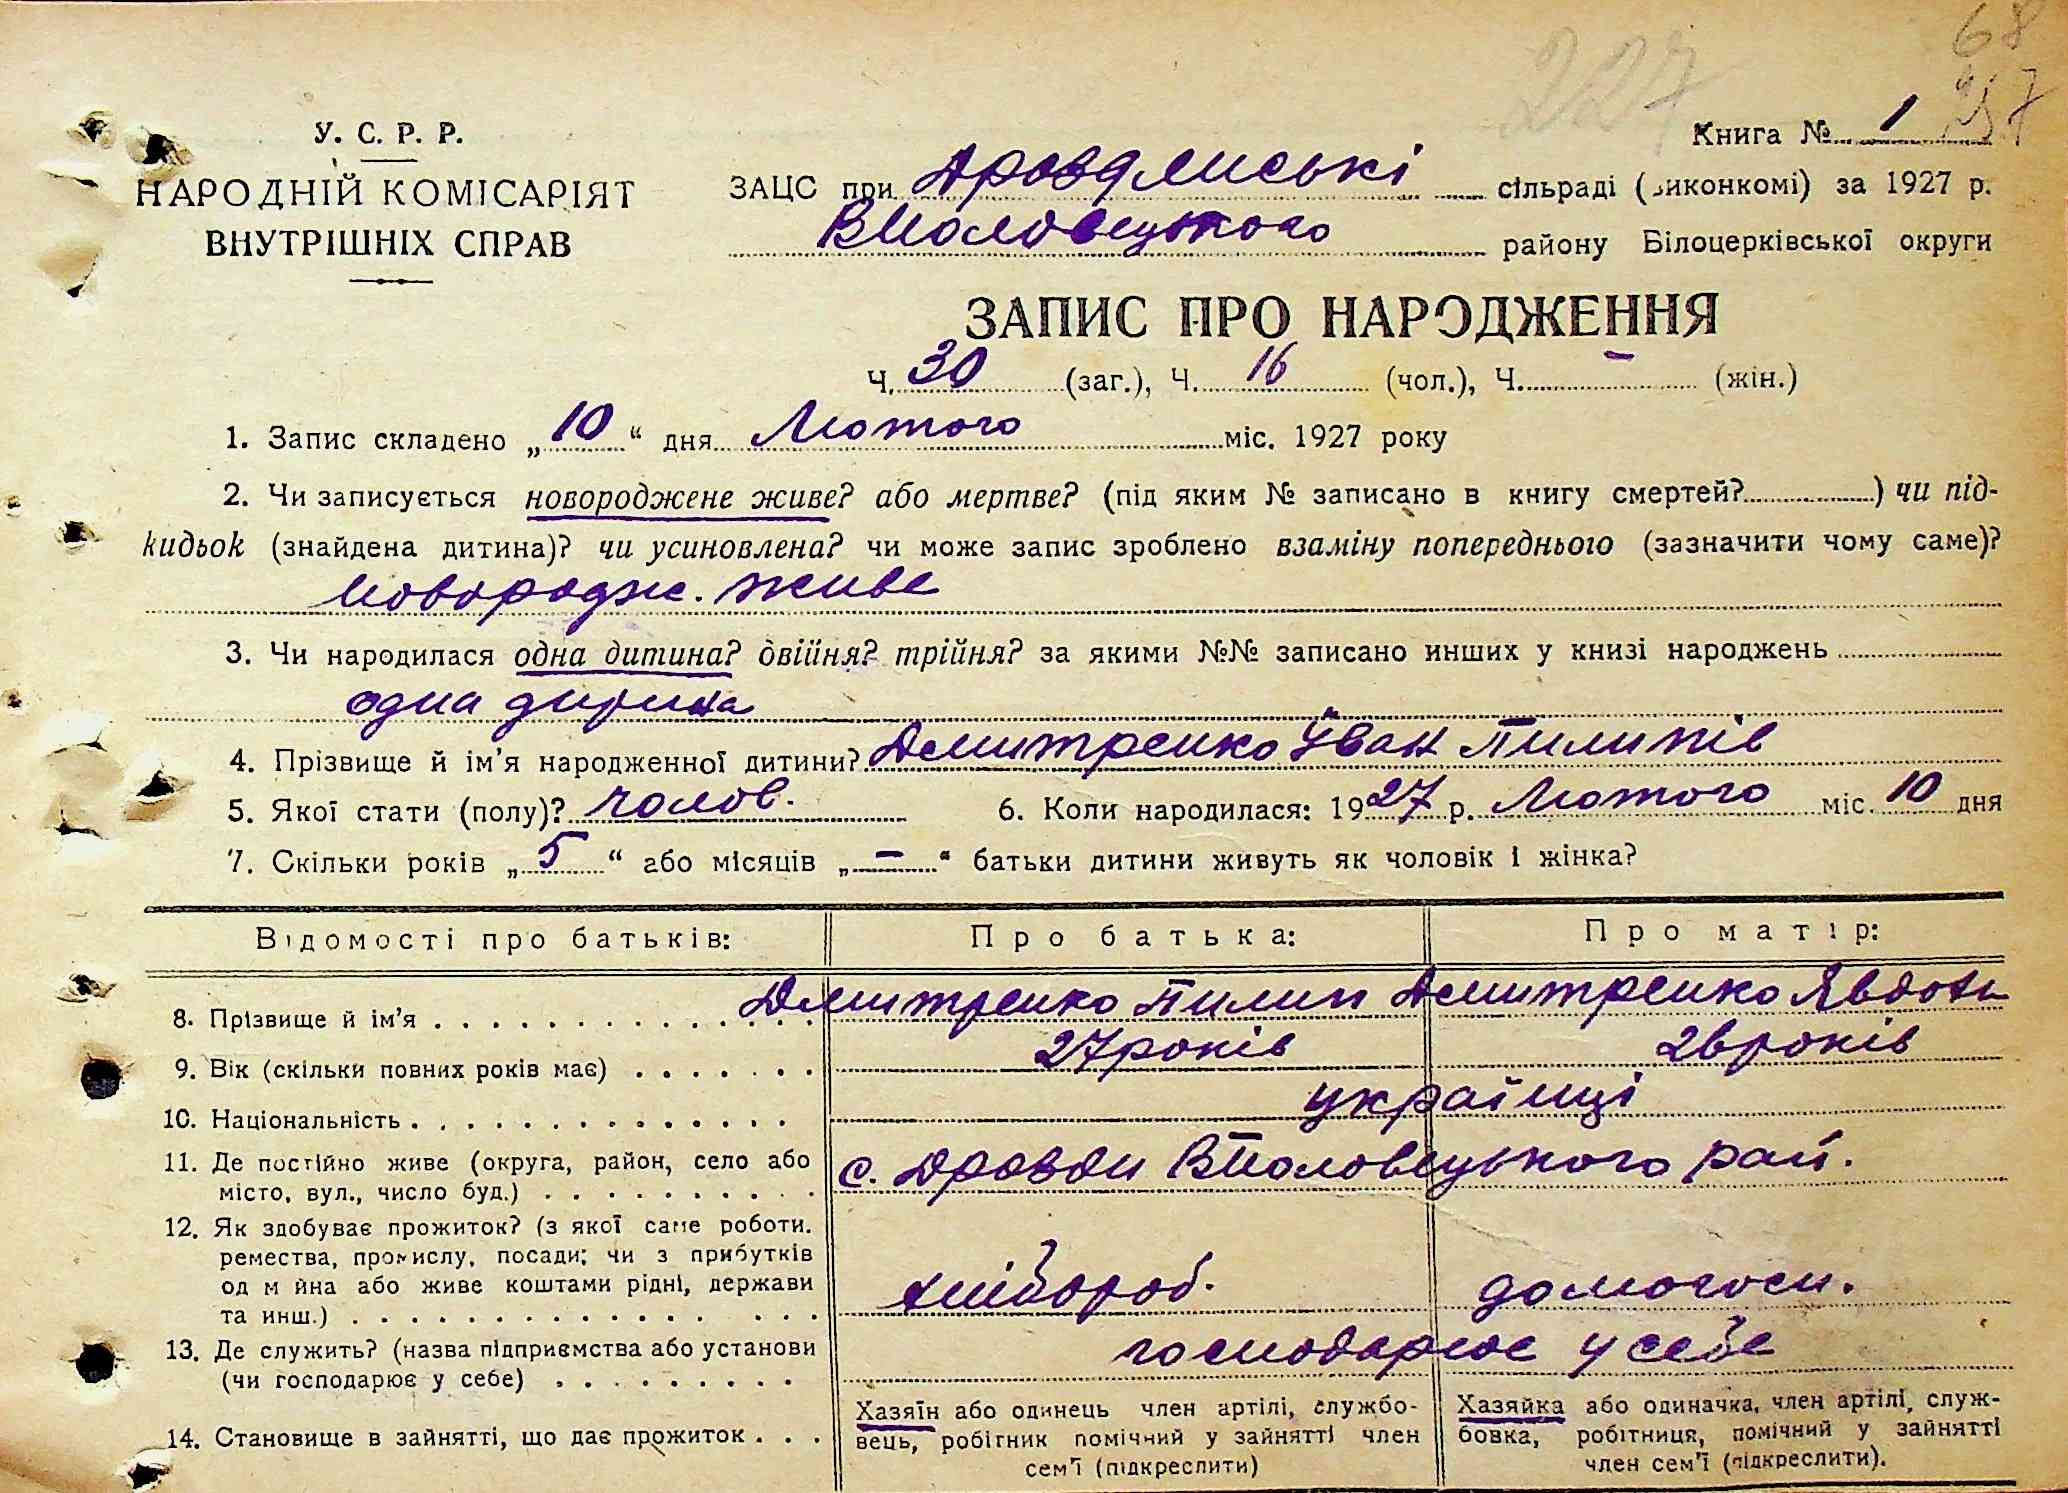 227
68
257
У. С. Р. Р.
НАРОДНІЙ КОМІСАРІЯТ
ВНУТРІШНІХ СПРАВ
Книга № 1
ЗАЦС при Дроздянські сільраді (виконкомі) за 1927 р.
ВПоловецького району Білоцерківської округи
ЗАПИС ПРО НАРОДЖЕННЯ
Ч. 30 (заг.), Ч. 16 (чол.), Ч. — (жін.)
1. Запис складено „10“ дня Лютого міс. 1927 року
2. Чи записується новороджене живе? або мертве? (під яким № записано в книгу смертей?) чи під-
кидьок (знайдена дитина)? чи усиновлена? чи може запис зроблено взаміну попереднього (зазначити чому саме)?
новородж. живе
3. Чи народилася одна дитина? двійня? трійня? за якими №№ записано инших у книзі народжень
одна дитина
4. Прізвище й ім'я народженної дитини? Дмитренко Іван Пилипів
5. Якої стати (полу)? чолов. 6. Коли народилася: 1927 р. Лютого міс. 10 дня
7. Скільки років „5“ або місяців „—“ батьки дитини живуть як чоловік і жінка?
Відомості про батьків: Про батька: Про матір:
8. Прізвище й ім'я Дмитренко Пилип Дмитренко Явдоха
9. Вік (скільки повних років має) 27 років 26 років
10. Національність українці
11. Де постійно живе (округа, район, село або
місто, вул., число буд.) с. Дрозди ВПоловецького рай.
12. Як здобуває прожиток? (з якої саме роботи.
ремества, промислу, посади; чи з прибутків
од майна або живе коштами рідні, держави
та инш.) хлібороб. домогосп.
13. Де служить? (назва підприємства або установи
(чи господарює у себе) господарює у себе
14. Становище в зайнятті, що дає прожиток
Хазяїн або одинець член артілі, службо-
вець, робігник помічний у зайнятті член
сем'ї (підкреслити)
Хазяйка або одиначка, член артілі, служ-
бовка, робітниця, помічний у зайнятті
член сем'ї (підкреслити).